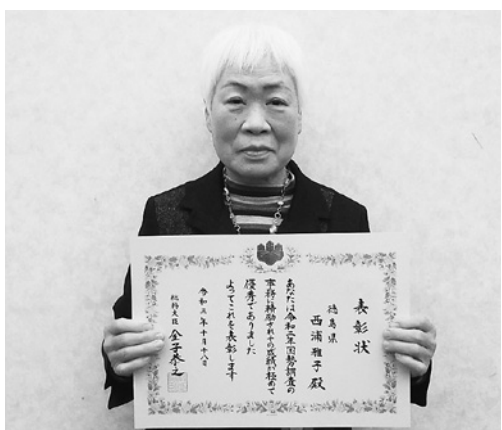 表彰状
徳島県
西浦雅子殿
あなたは令和二年国勢調査の
事務に精励されその成績が極めて
優秀でありました
よってこれを表彰します
令和三年十月十八日
総務大臣 金子恭之